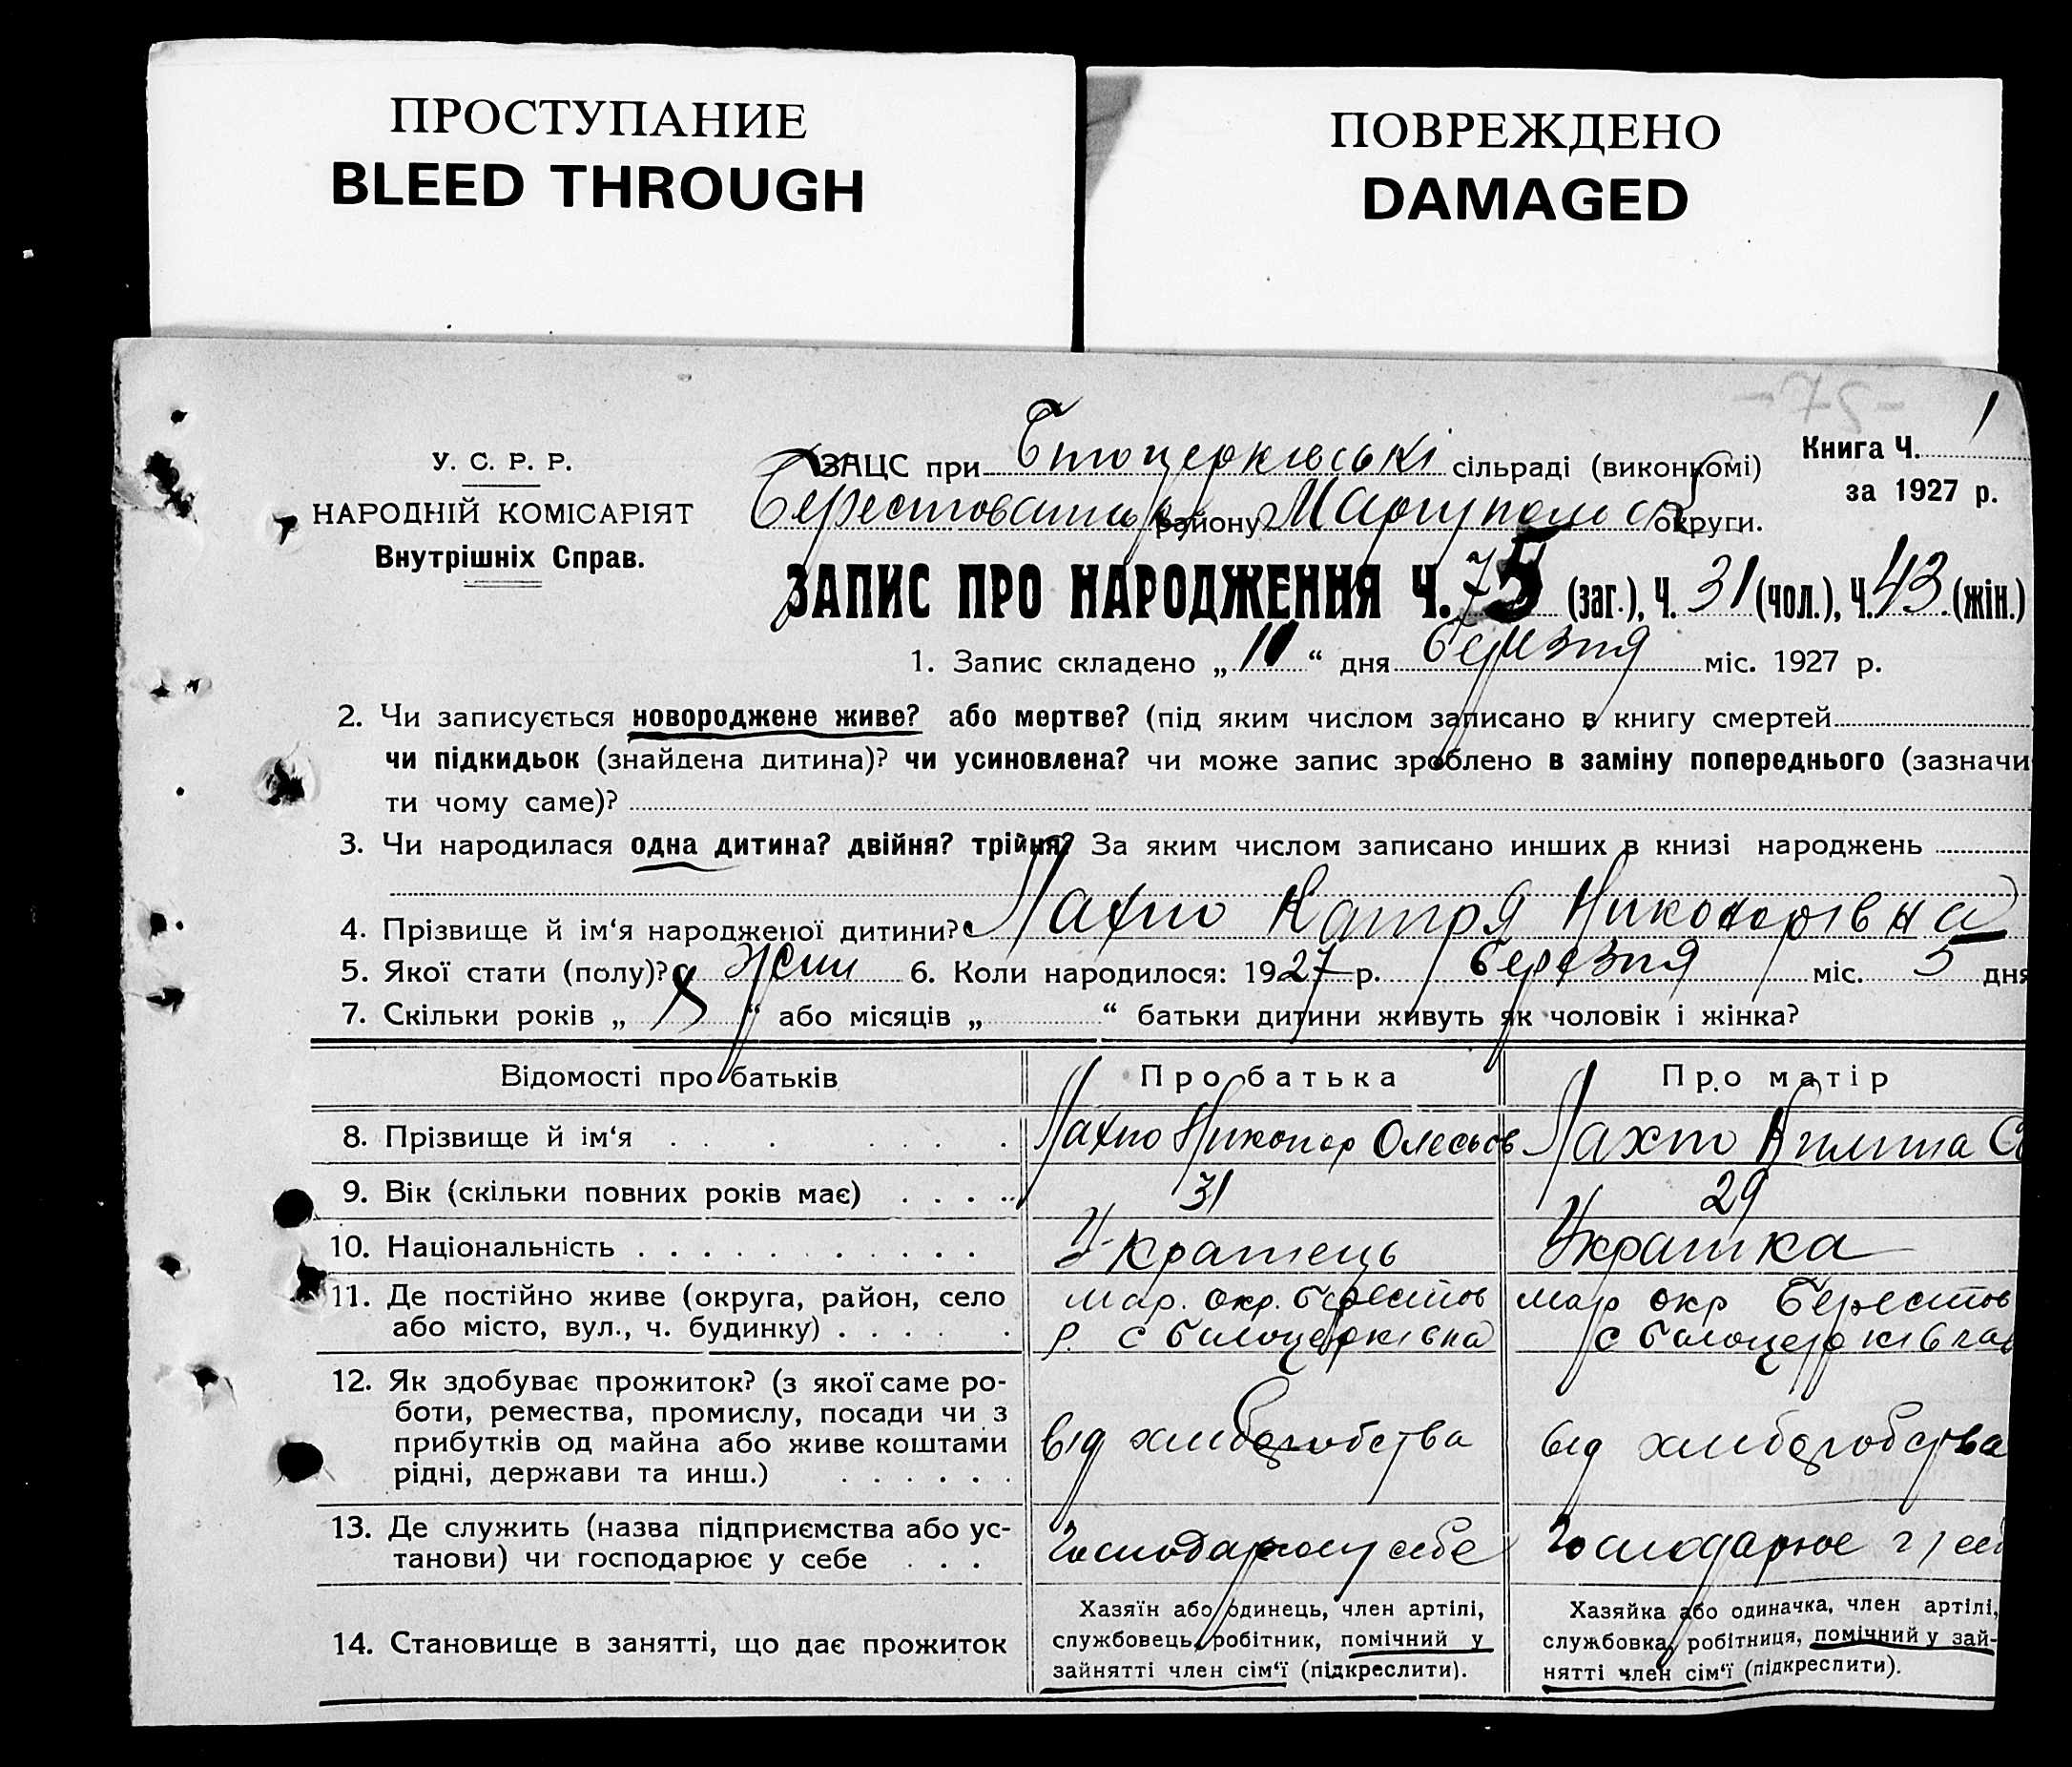 ПРОСТУПАНИЕ
BLEED THROUGH
ПОВРЕЖДЕНО
DAMAGED
У. С. Р. Р.
НАРОДНІЙ КОМІСАРІЯТ
Внутрішніх Справ.
ЗАЦС при Білоцерківські сільраді (виконкомі)
Книга Ч. 1
за 1927 р.
району Маріупольс округи.
ЗАПИС ПРО НАРОДЖЕННЯ Ч. 75 (заг.), Ч. 31 (чол.), Ч. 43 (жін.)
1. Запис складено „ “ дня березня міс. 1927 р.
2. Чи записується новороджене живе? або мертве? (під яким числом записано в книгу смертей
чи підкидьок (знайдена дитина)? чи усиновлена? чи може запис зроблено в заміну попереднього (зазначи
ти чому саме)?
3. Чи народилася одна дитина? двійня? трійня? За яким числом записано инших в книзі народжень
4. Прізвище й ім‘я народженої дитини? Махно Катря Никонорівна
5. Якої стати (полу)? жін 6. Коли народилося: 1927 р. березня міс. 5 дня
7. Скільки років „ 8 “ або місяців „ “ батьки дитини живуть як чоловік і жінка?
Відомості про батьків Про батька Про матір
8. Прізвище й ім‘я Махно Никонор Махно
9. Вік (скільки повних років має) 31 29
10. Національність Українець Українка
11. Де постійно живе (округа, район, село Мар. окр. Берестов Мар окр Берестов
або місто, вул., ч. будинку) р. с Білоцерківка с Білоцерківка
12. Як здобуває прожиток? (з якої саме ро-
боти, ремества, промислу, посади чи з
прибутків од майна або живе коштами від хліборобства від хліборобства
рідні, держави та инш.)
13. Де служить (назва підприємства або ус-
танови) чи господарює у себе Господарює у себе Господарює
14. Становище в занятті, що дає прожиток
Хазяїн або одинець, член артілі,
службовець, робітник, помічний у
зайнятті член сім‘ї (підкреслити).
Хазяйка або одиначка, член артілі,
службовка, робітниця, помічний у зай-
нятті член сім‘ї (підкреслити).